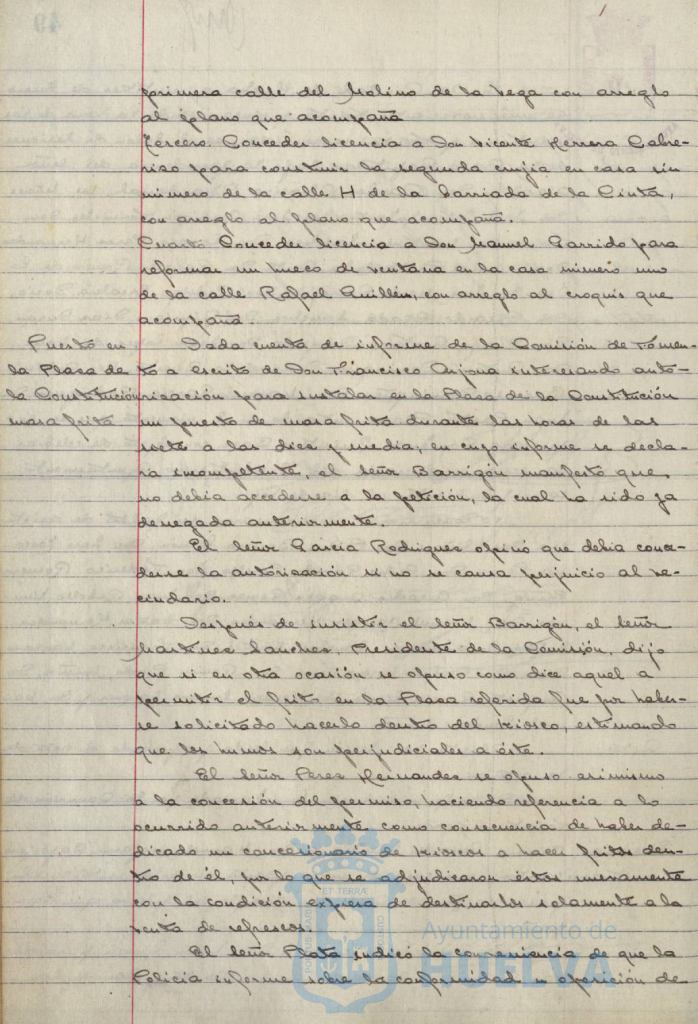 primera calle del Molino de la Vega con arreglo
al plano que acompaña
Tercero. Conceder licencia a Don Vicente Herrera Cabre-
rizo para construir la segunda crujia en casa sin
número de la calle H de la barriada de la Cinta,
con arreglo al plano que acompaña.
Cuarto Conceder licencia a Don Manuel Garrido para
reformar un hueco de ventana en la casa número uno
de la calle Rafael Guillén, con arreglo al croquis que
acompaña.
Puesto en
la Plaza de
la Constitución
masa frita
Dada cuenta de informe de la Comisión de Fomen-
to a escrito de Don Francisco Arjona interesando auto-
rización para instalar en la Plaza de la Constitución
un puesto de masa frita durante las horas de las
siete a las diez y media, en cuyo informe se decla-
ra incompetente, el Señor Barrigón manifestó que
no debia accederse a la petición, la cual ha sido ya
denegada anteriormente.
El Señor Garcia Rodriguez opinó que debia conce-
derse la autorización si no se causa perjuicio al ve-
cindario.
Después de insistir el Señor Barrigón, el Señor
Martinez Sanchez, Presidente de la Comisión, dijo
que si en otra ocasión se opuso como dice aquel a
permitir el frito en la Plaza referida fue por haber-
se solicitado hacerlo dentro del kiosco, estimando
que los humos son perjudiciales a éste.
El Señor Perez Hernandez se opuso asimismo
a la concesión del permiso, haciendo referencia a lo
ocurrido anteriormente como consecuencia de haber de-
dicado un concesionario de kioscos a hacer fritos den-
tro de él, por lo que se adjudicaron éstos nuevamente
con la condición expresa de destinarlos solamente a la
venta de refrescos.
El Señor Plata indicó la conveniencia de que la
Policia informe sobre la conformidad u oposición de
Ayuntamiento de
HUELVA